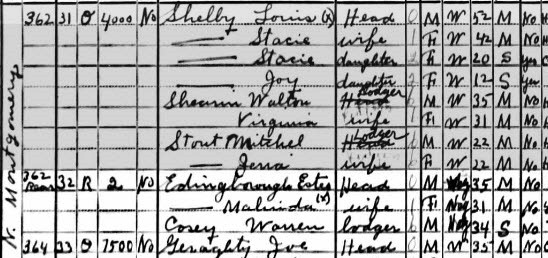 362 31 O 4000 No Shelby Louis (x) Head 0 M W 52 M No
—— Stacie wife 1 F W 42 M No
—— Stacie daughter 2 F W 20 S Yes
—— Joy daughter 2 F W 12 S Yes
Walton Lodger 6 M W 35 M No
Virginia wife 6 F W 31 M No
Stout Mitchel Lodger 6 M W 22 M No
—— wife 6 F W 22 M No
362 Rear 32 R 2 No Edingborough Head 0 M Neg 35 M No
—— Malinda (x) wife 1 F Neg 31 M No
Cosey Warren lodger 6 M Neg 34 S No
364 33 O 7500 No Geraghty Joe Head 0 M W 35 M No
N. Montgomery